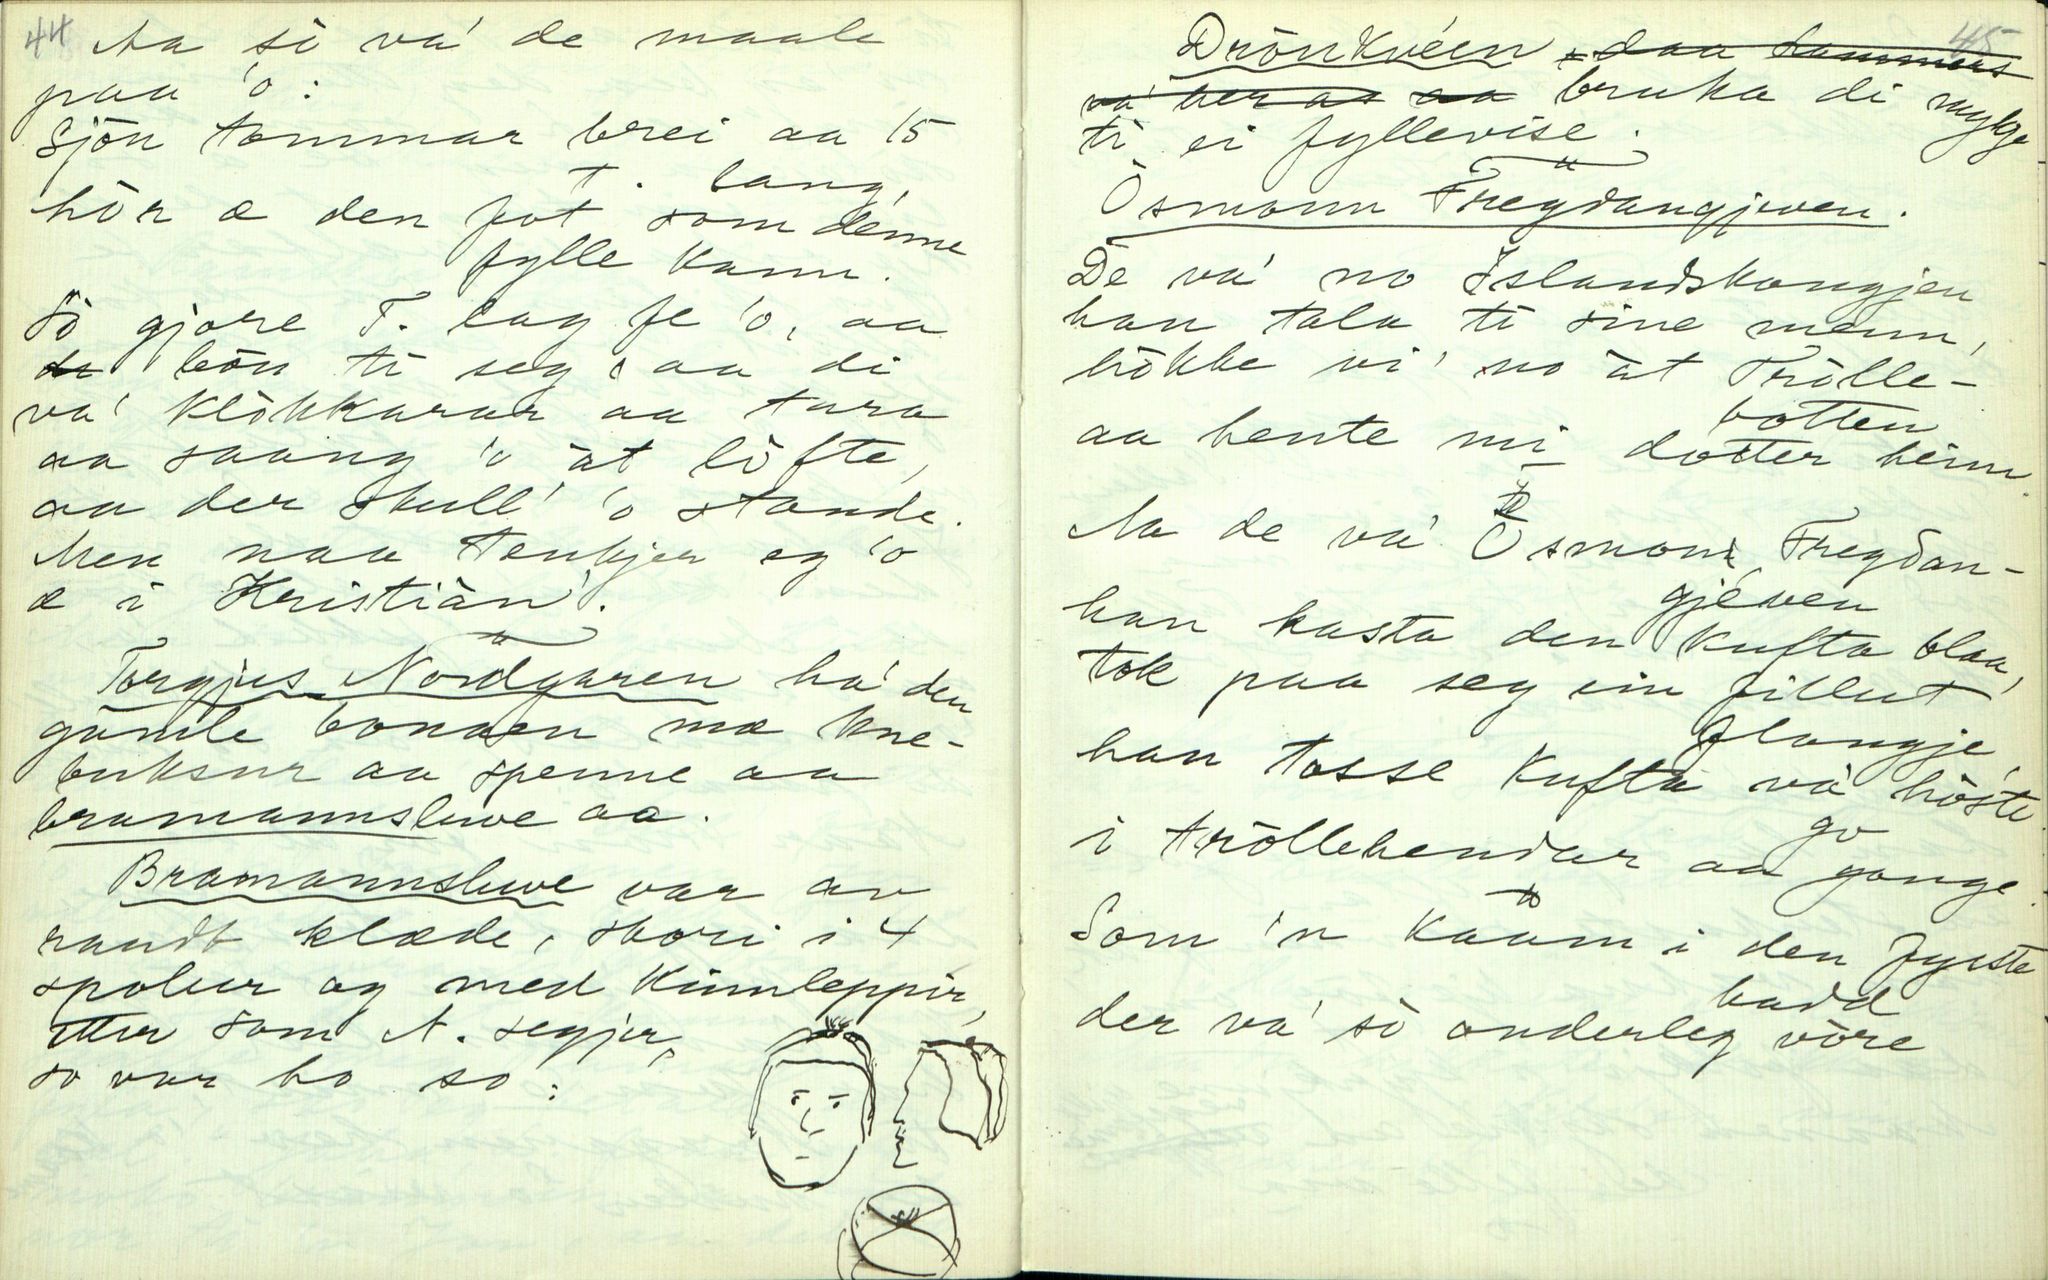 44
Aa sò va' de maale
paa 'o:
Sjön tommar brei aa 15
T. lang,
hör æ den fot som denne
fylle kann.
Sò gjore T. lag fe 'o, aa
bön ti seg, aa di
va' klökkarar aa tura
aa saang 'o åt löfte,
aa der skull' 'o stande.
Men naa tenkjer eg 'o
æ i Kristiàn'.
Torgjus Nordgaren ha' den
gamle bonaen mæ kne-
buksur aa spenne aa
bramannsluve aa.
Bramannsluve var av
raudt klæde, skori i 4
spolur og med Kinnleppir,
etter som N. segjer,
so var ho so:
45
Drönkvéen, daa
bruka di mykje
ti ei fyllevise.
Òsmann Fregdangjeven.
De va' no Islandskongjen
han tala ti sine menn,
hökke vi' no åt Trölle-
botten
aa hente mi dotter heim.
Aa de va' Òsmann Fregdan-
gjeven
han kasta den kufta blaa,
tok paa seg ein fillut
flangje,
han tosse kufta va' höste
go
i tröllehendar aa gange.
Som 'n kaam i den fyste
hadd
der va' sò onderleg vöre